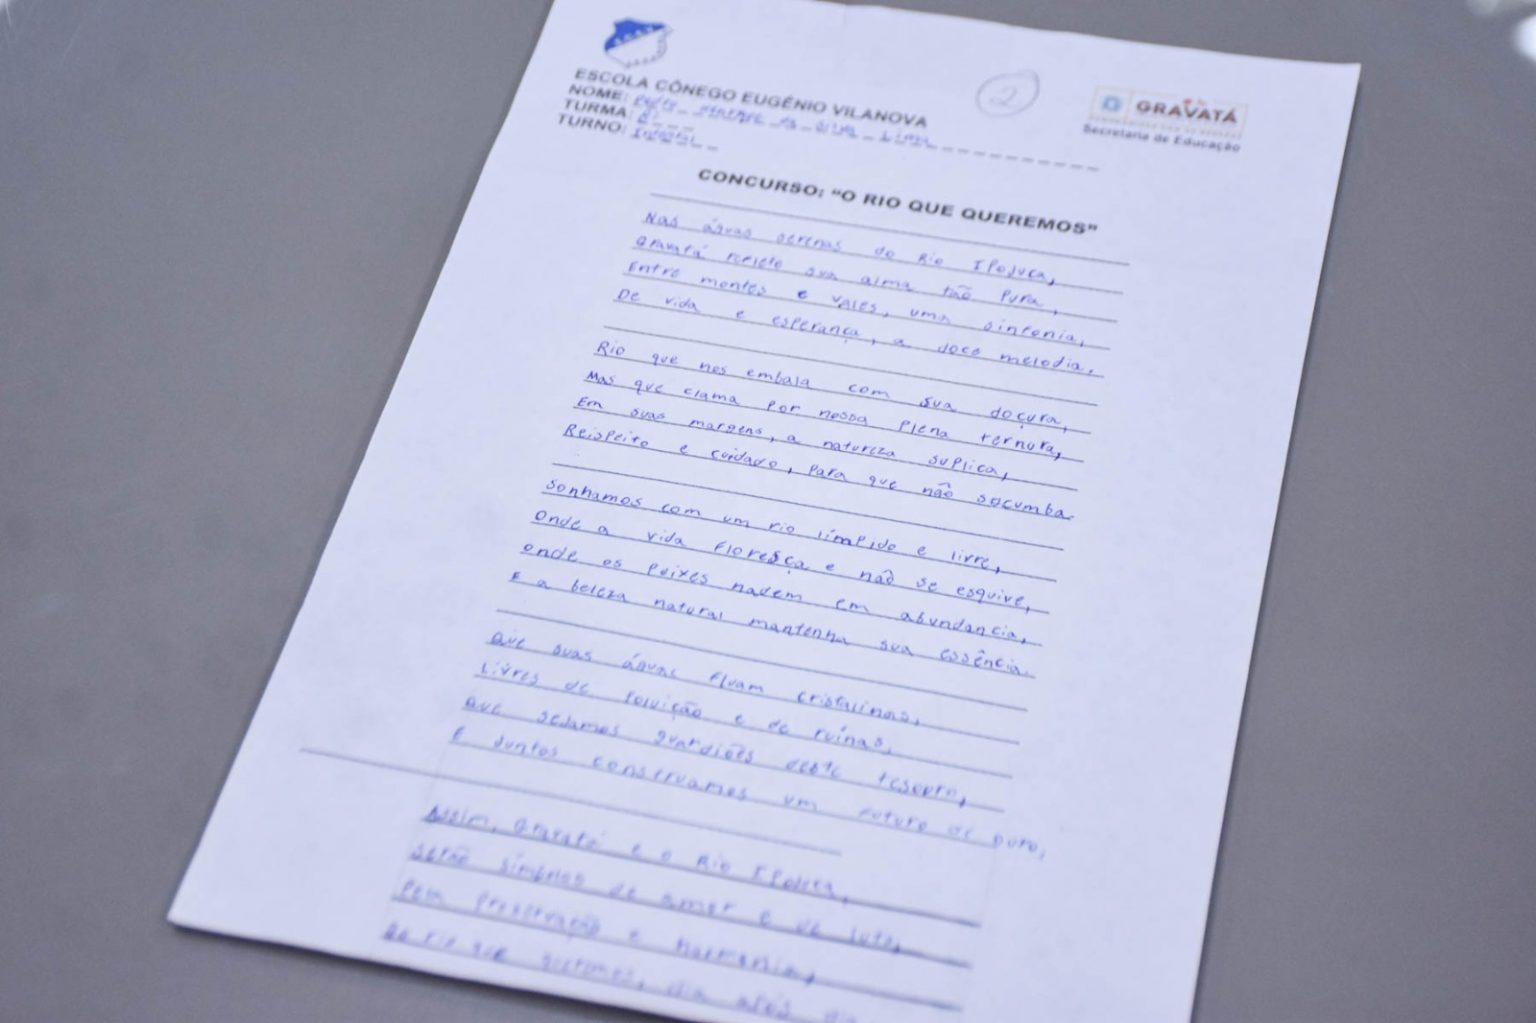 ESCOLA CÔNEGO EUGÊNIO VILANOVA
NOME: da Silva Lima
TURMA:
TURNO: Integral
2
GRAVATÁ
Secretaria de Educação
CONCURSO: "O RIO QUE QUEREMOS"
Nas águas serenas do Rio Ipojuca,
Gravatá reflete sua alma tão pura,
Entre montes e vales, uma sinfonia,
De vida e esperança, a doce melodia.
Rio que nos embala com sua doçura,
Mas que clama por nossa plena ternura,
Em suas margens, a natureza suplica,
Reispeito e cuidado, para que não socumba.
Sonhamos com um rio límpido e livre,
Onde a vida floresça e não se esquive,
Onde os peixes nadem em abundancia,
E a beleza natural mantenha sua essência.
Que suas águas fluam cristalinas,
Livres de poluição e de ruínas,
Que sejamos guardiões deste tesouro,
E juntos construamos um futuro de ouro,
Assim, Gravatá e o Rio Ipojuca,
Serão símbolos de amor e de luta,
Pela preservação e harmonia,
Do rio que queremos, dia após dia